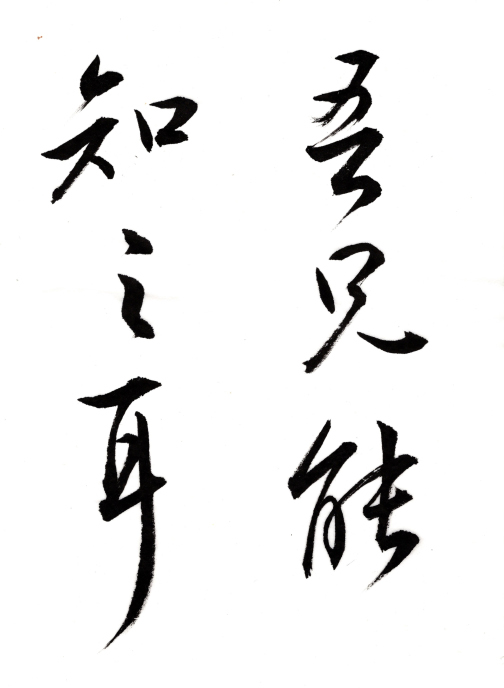 吾兄能
知之耳